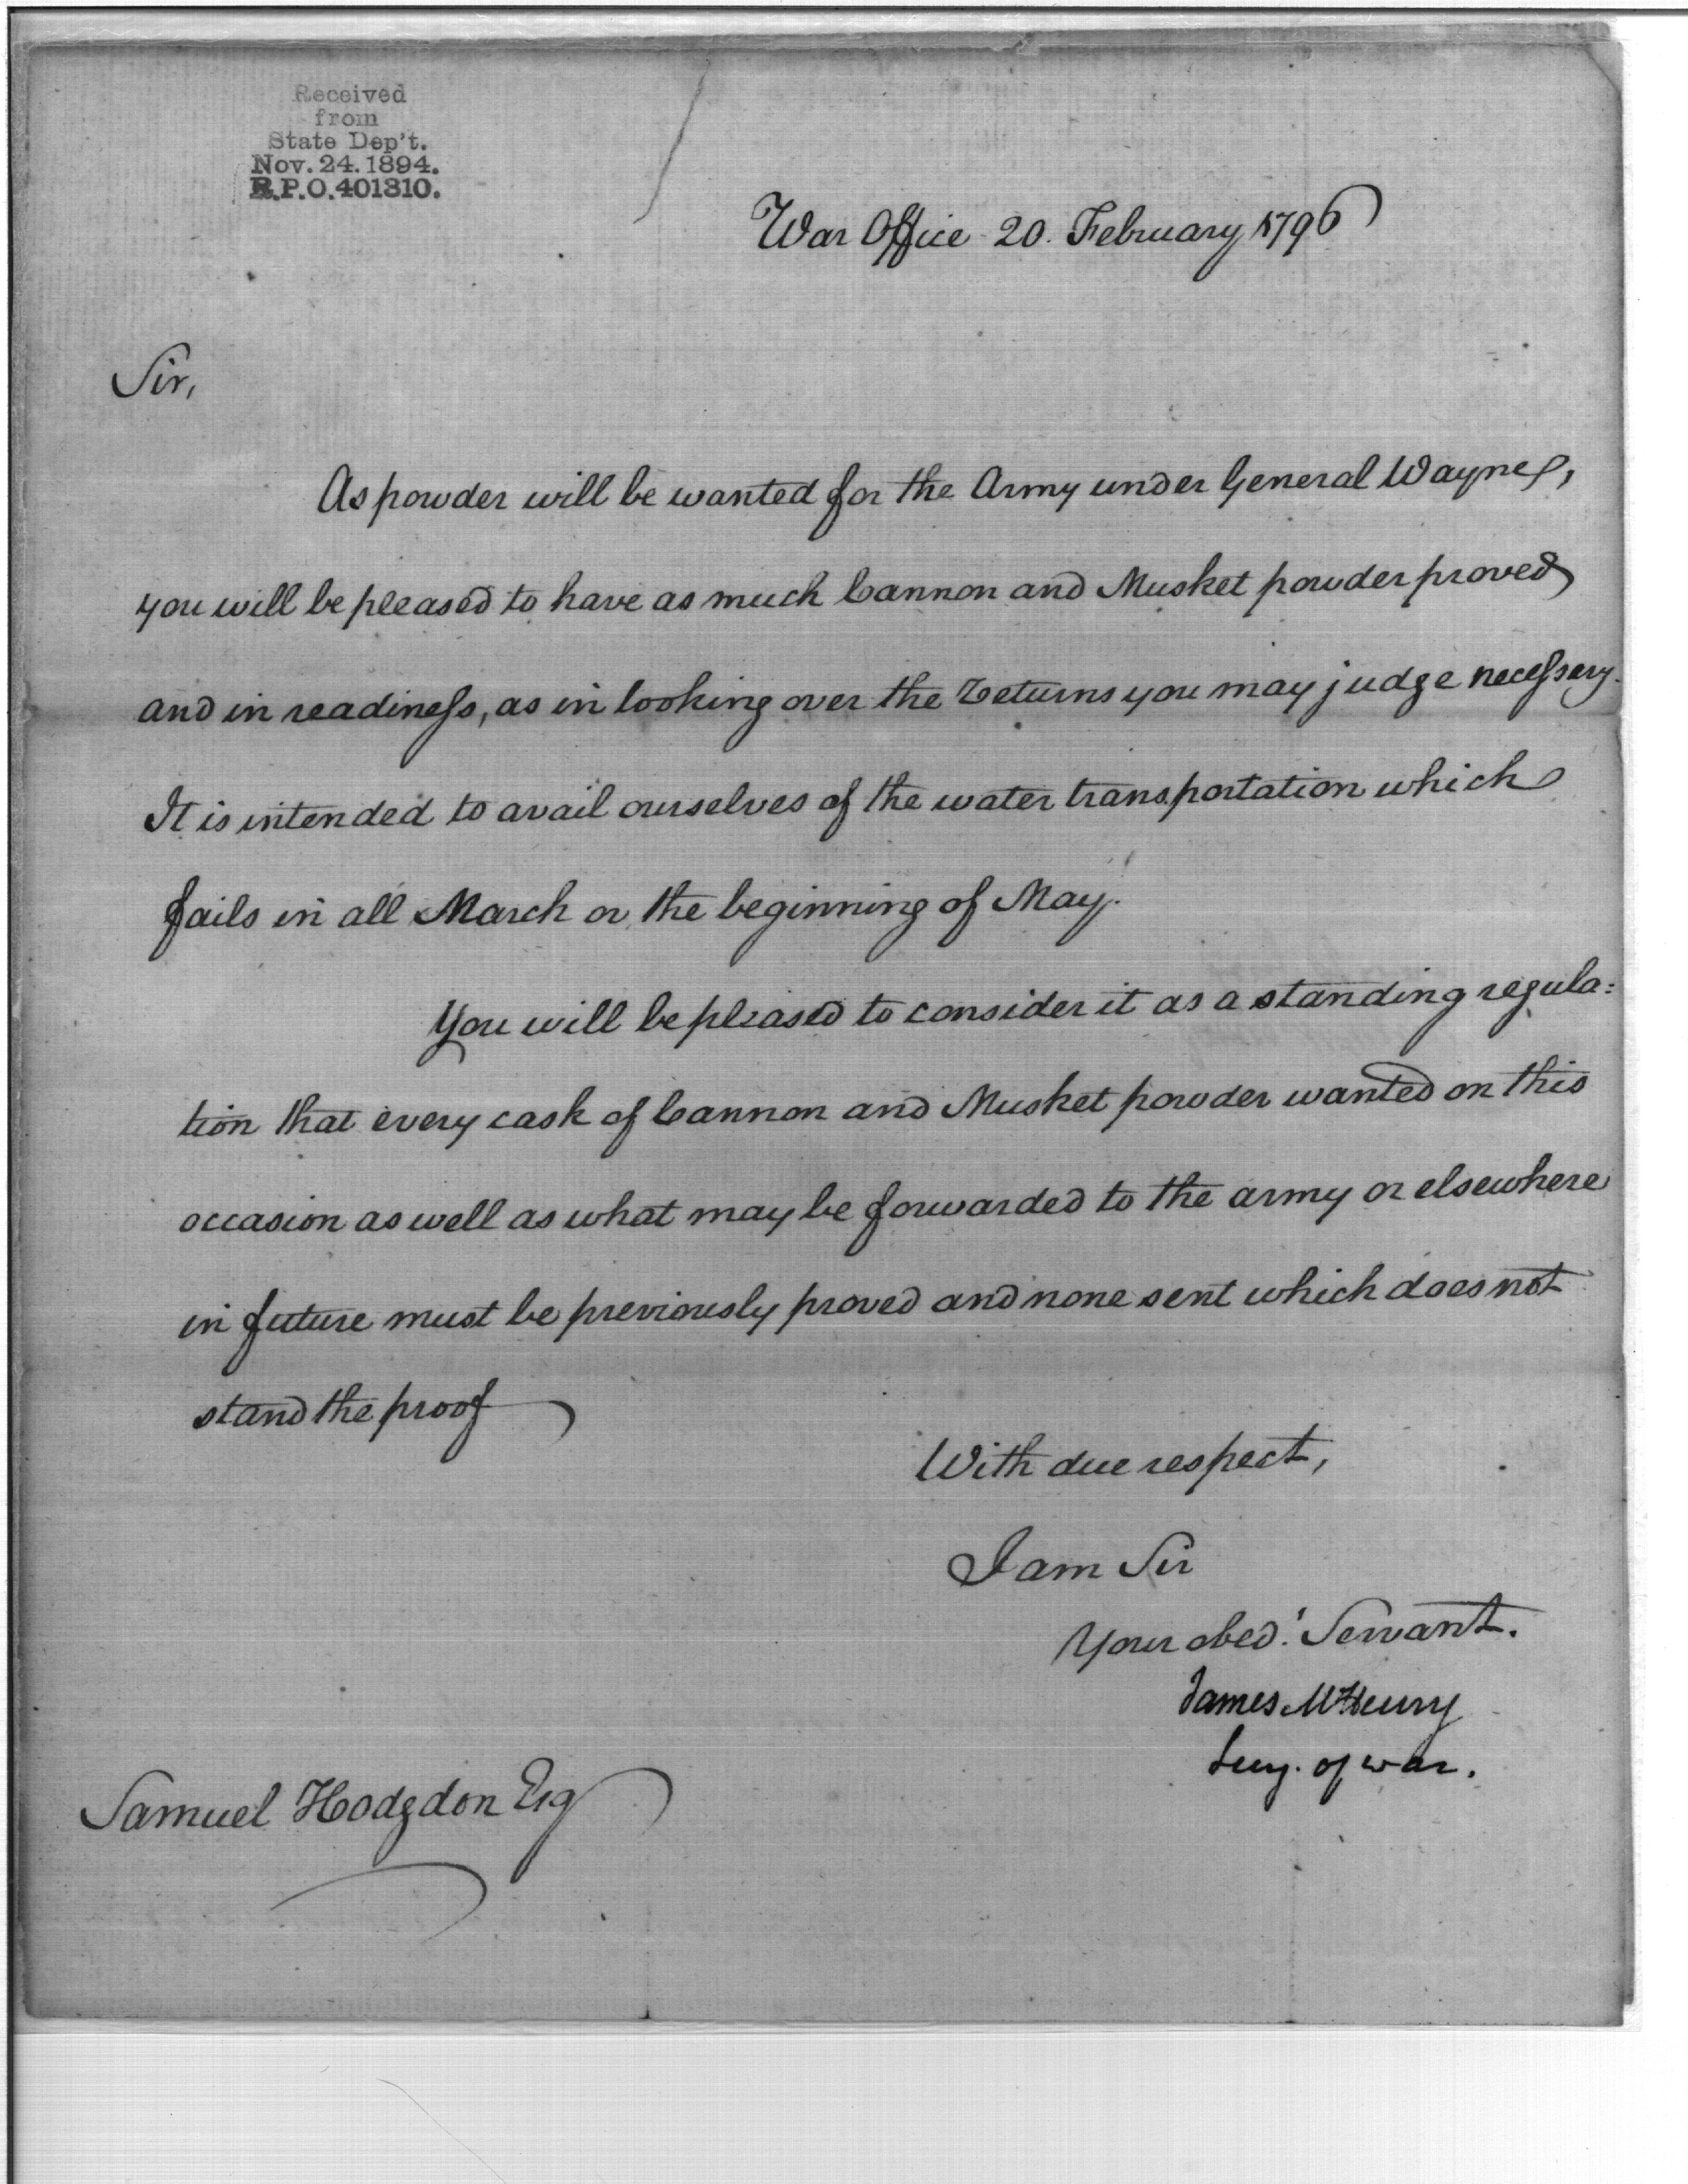 Received
from
State Dep't.
Nov. 24. 1894.
R.P.O. 401310.
War Office 20. February 1796
Sir,
As powder will be wanted for the Army under General Wayne,
you will be pleased to have as much Cannon and Musket powder proved
and in readiness, as in looking over the returns you may judge necessary.
It is intended to avail ourselves of the water transportation which
fails in all March or the beginning of May.
You will be pleased to consider it as a standing regula:
tion that every cask of Cannon and Musket powder wanted on this
occasion as well as what may be forwarded to the army or elsewhere
in future must be previously proved and none sent which does not
stand the proof
With due respect,
I am Sir
Your obed.t Servant.
James McHenry
Secy. of war.
Samuel Hodgdon Esq